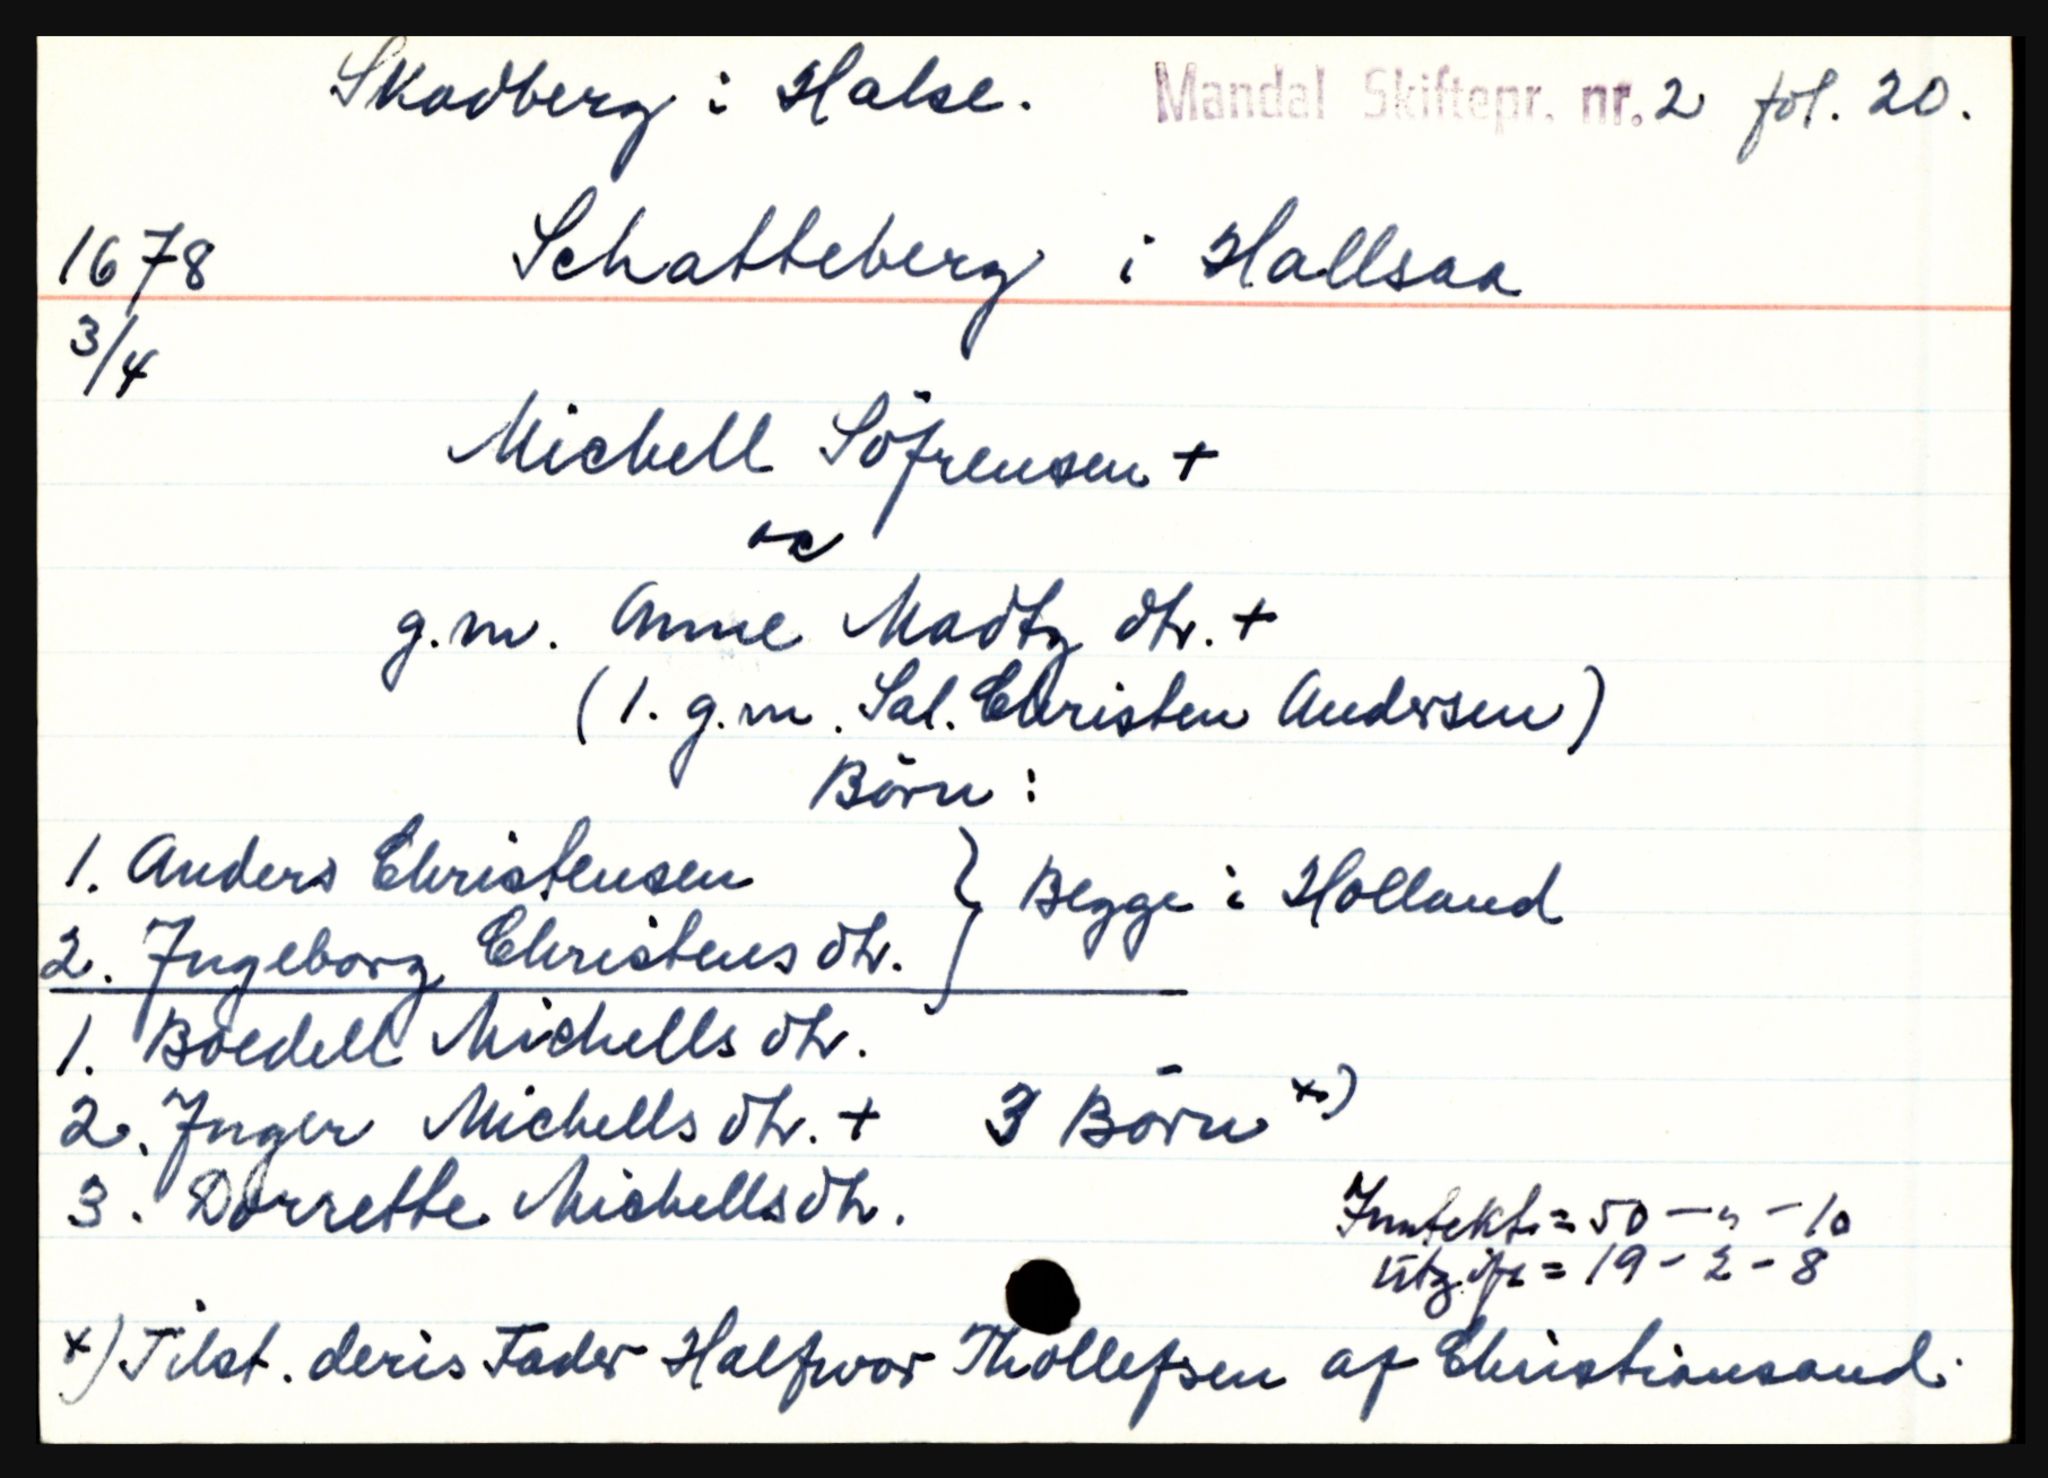 Skadberg i Halse. Mandal Skiftepr. nr. 2 fol. 20.
1678 Schatteberg i Hallsaa
3/4
Michell Söfrensen +
oc
g.m. Anne Madtz dtr. +
(1. g.m. Sal. Christen Andersen)
Börn:
1. Anders Christensen } Begge i Holland
2. Ingeborg Christens dtr.
1. Boedell Michells dtr.
2. Inger Michells dtr. + 3 Börn x)
3. Dorrette Michells dtr.
Inntekt = 50 - " - 10
Utgift = 19 - 2 - 8
x) Tilst. deris Fader Halfwor Thollefsen af Christiansand.